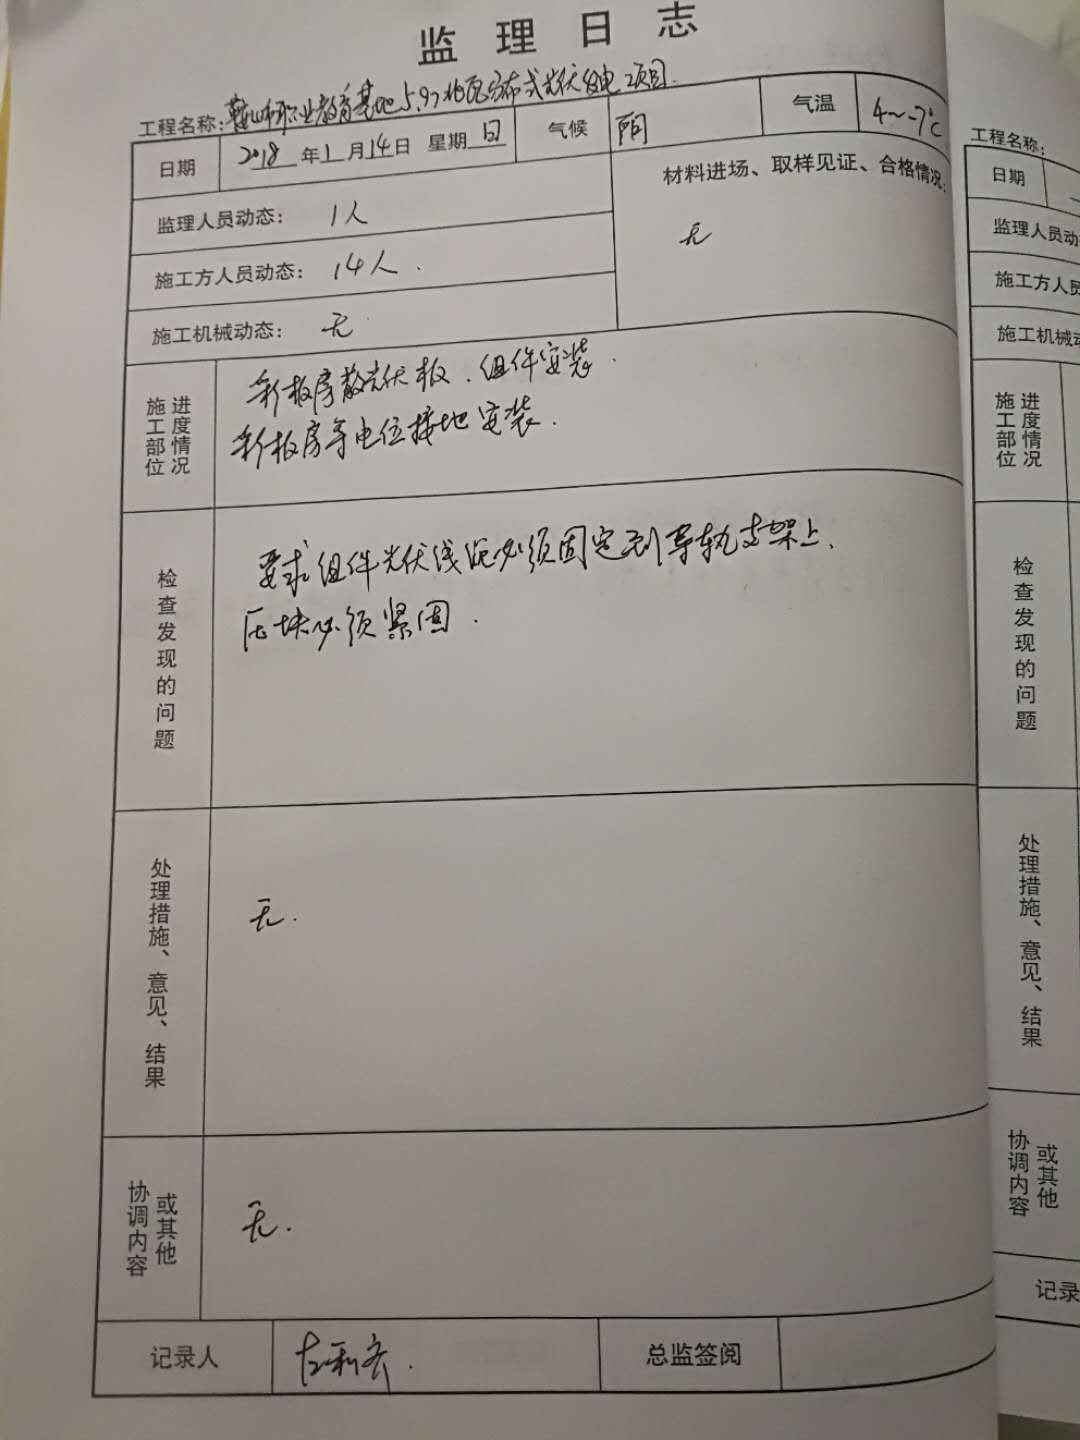 监理日志
工程名称：鞍山市职业教育基地5.97兆瓦分布式光伏发电项目.
日期 2018年1月14日 星期日 气候 阴 气温 4～-7℃
监理人员动态： 1人
材料进场、取样见证、合格情况：
无
施工方人员动态： 14人.
施工机械动态： 无
施工部位进度情况
彩板房散光伏板、组件安装.
彩板房等电位接地安装.
检查发现的问题
要求组件光伏线缆必须固定到导轨支架上、
压块必须紧固.
处理措施、意见、结果
无.
协调内容或其他
无.
记录人 总监签阅
工程名称：
日期
监理人员动
施工方人员
施工机械动
施工部位进度情况
检查发现的问题
处理措施、意见、结果
协调内容或其他
记录